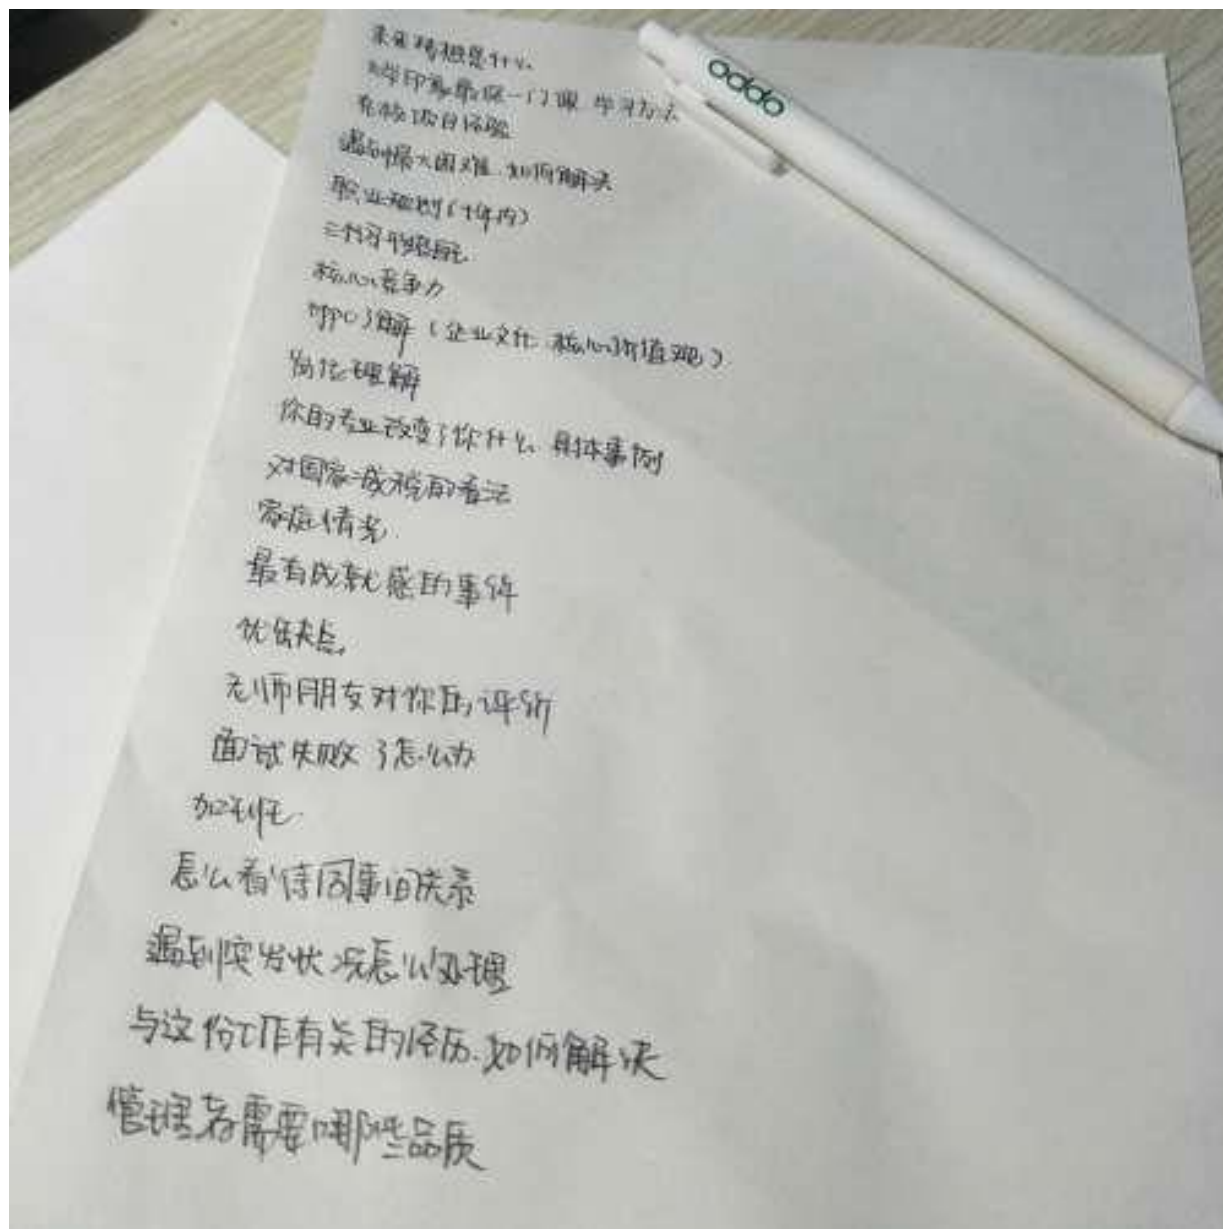 oppo
大学印象最深一门课 学习方法
项目经验
遇到最大困难.如何解决
职业规划(十年内)
三个词形容自己
核心竞争力
oppo了解(企业文化 核心价值观)
岗位理解
你的专业改变了你什么 具体事例
对国家减税的看法
家庭情况
最有成就感的事件
优缺点
老师朋友对你的评价
面试失败了怎么办
加班
怎么看待同事间关系
遇到突发状况怎么处理
与这份工作有关的经历.如何解决
管理者需要哪些品质